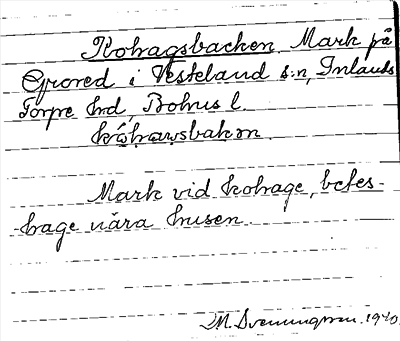 Kohagsbacken, Mark på
Grored i Västerland s:n, Inlands
Torpe hd, Bohus l.
kóhawsbakɑn.
Mark vid kohage, betes-
hage nära husen.
M. Svenungsson. 1940.